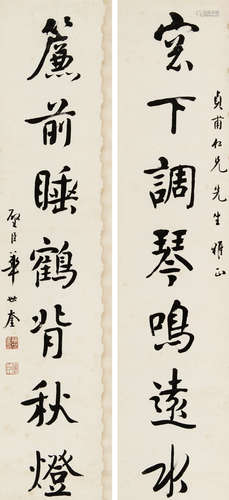 貞甫仁兄先生雅正
窓下調琴鳴遠水
簾前睡鶴背秋燈
璧臣華世奎